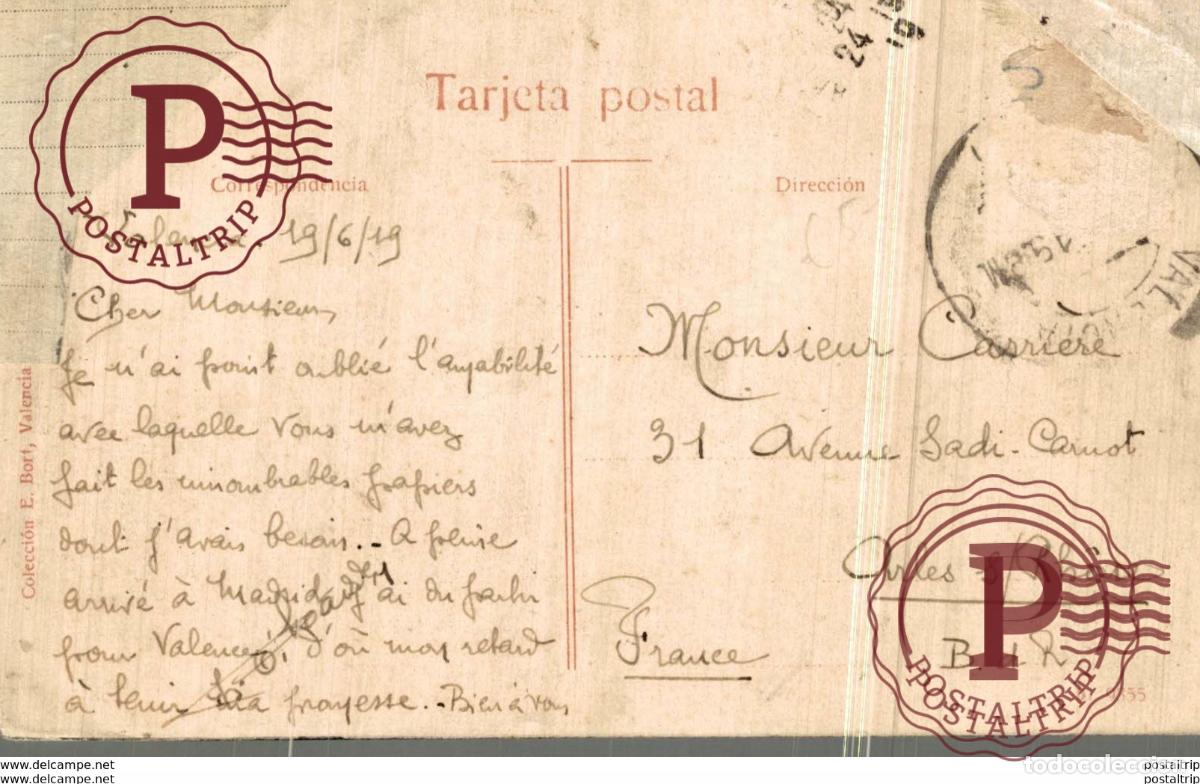 Tarjeta postal
Correspondencia
Dirección
19/6/19
Cher Monsieur,
Je n'ai point oublié l'amabilité
avec laquelle vous m'avez
fait les innombrables papiers
dont j'avais besoin.. A peine
arrivé à Madrid j'ai du partir
pour Valence, d'où mon retard
à tenir ma promesse.. Bien à vous
Monsieur Carrière
31 Avenue Sadi-Carnot
Arles s/Rhône
B. d. R.
France
Colección E. Bort, Valencia
24
19
P
POSTALTRIP
P
POSTALTRIP
POSTALTRIP
todocoleccion
www.delcampe.net
postaltrip
www.delcampe.net
postaltrip